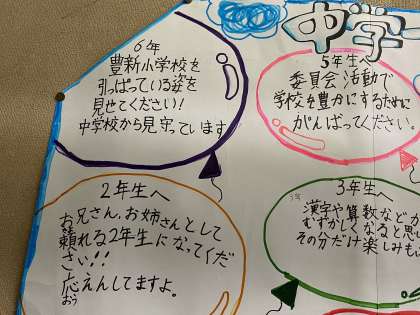 中学
6年
豊新小学校を
引っぱっている姿を
見せてください!
中学校から見守っています
5年生へ
委員会活動で
学校を豊かにするために
がんばってください
2年生へ
お兄さん、お姉さんとして
頼れる2年生になってくだ
さい!!
応えんしてますよ。
おう
3年生へ
漢字や算数などが
むずかしくなると思
その分だけ楽しみも